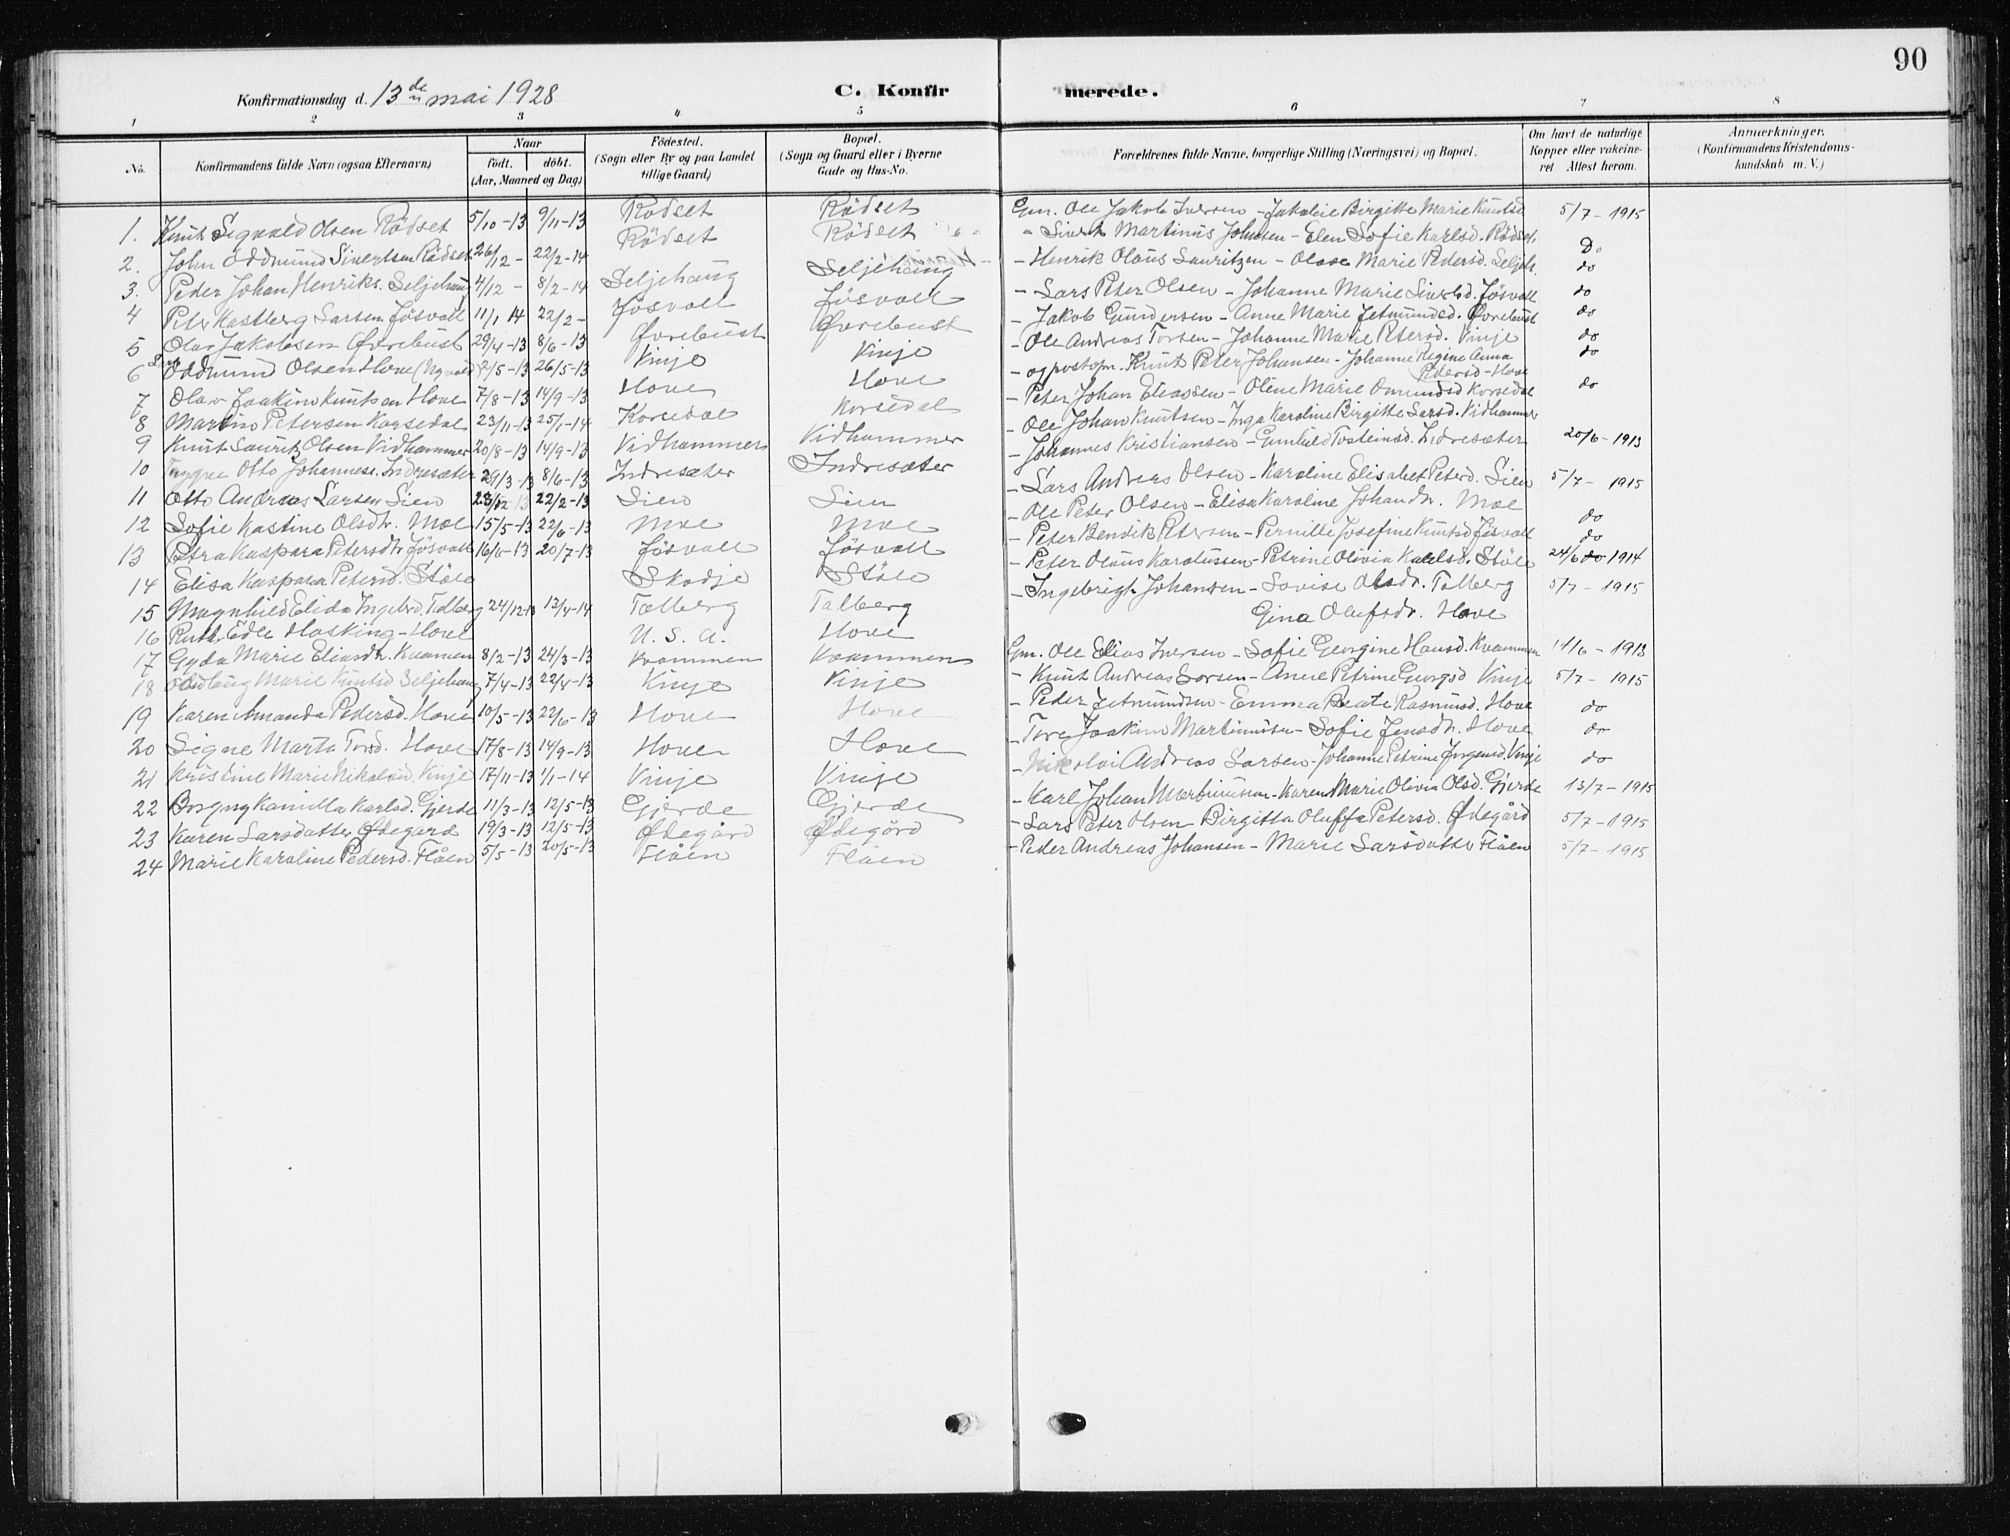 90
Konfirmationsdag d. 13de mai 1928
C. Konfirmerede.
1 2 3 4 5 6 7 8
No. Konfirmandens fulde Navn (ogsaa Efternavn) Naar født. døbt. (Aar, Maaned og Dag) Födested. (Sogn eller By og paa Landet tillige Gaard) Bopæl. (Sogn og Gaard eller i Byerne Gade og Hus-No. Forældrenes fulde Navne, borgerlige Stilling (Næringsvei) og Bopæl. Om havt de naturlige Kopper eller vakcineret Attest herom. Anmærkninger. (Konfirmandens Kristendomskundskab m. V.)
1. Knut Sigvald Olsen Rödset 5/10-13 9/11-13 Rödset Rödset Gm. Ole Jakob Iversen - Jakobie Birgitte Marie Knutsd 5/7-1915
2. John Oddmund Sivertsen Rödset 26/12- 22/2-14 Rödset Rödset - Sivert Martinus Johnsen - Elen Sofie Karlsd. Rödset. Do
3. Peder Johan Henriks. Seljehaug 4/12- 8/2-14 Seljehaug Seljehaug - Henrik Olaus Lauritzen - Olave Marie Pedersd. Seljeh. do
4 Peter Kastberg Larsen Jösvoll 11/1 14 22/2- Jösvoll Jösvoll - Lars Peter Olsen - Johanne Marie Sivertsd. Jösvoll do
5 Olav Jakobsen Øvrebust 29/4-13 8/6-13 Øvrebust Øvrebust - Jakob Gundersen - Anne Marie Jetmundsd. Øvrebust do
6 Oddmund Olsen Hove 2/5-13 26/5-13 Vinje Vinje - Ole Andreas Torsen - Johanne Marie Petersd. Vinje do
7 Olav Joakim Knutsen Hove 7/8-13 14/9-13 Hove Hove - og postopn. Knut Peter Johansen - Johanne Regine Anna Pedersd - Hove do
8 Martin Petersen Korsedal 23/11-13 25/1-14 Korsedal Korsedal - Peter Johan Eliassen - Oline Marie Omundsd Korsedal do
9 Knut Lauritz Olsen Vidhammer 20/8-13 14/9-13 Vidhammer Vidhammer - Ole Johan Knutsen - Inga Karoline Birgitte Larsd. Vidhammer
10 Trygve Otto Johanness. Indresæter 29/3-13 8/6-13 Indresæter Indresæter - Johannes Kristiansen - Gunhild Tosteinsd. Indresæter 20/6-1913
11 Otto Andreas Larsen Lien 28/12 22/2-13 Lien Lien - Lars Andreas Olsen - Karoline Elisabet Petersd. Lien 5/7-1915
12 Sofie Kastine Olsdtr. Moe 15/5-13 22/6-13 Moe Moe - Ole Peter Olsen - Elisa Karoline Johandtr. Moe do
13 Petra Kaspara Petersdtr Jösvoll 16/6-13 20/7-13 Jösvoll Jösvoll - Peter Bendik Petersen - Pernille Josefine Knutsd Jösvoll do
14 Elisa Kaspara Petersd. Støle Skodje Støle - Peter Olaus Karolussen - Petrine Olivia Karlsd. Støle 24/6 do 1914
15 Magnhild Elida Ingebrd. Talberg 24/12-13 13/4-14 Talberg Talberg - Ingebrigt Johansen - Lovise Olsdr. Talberg 5/7-1915
16 Ruth Edle Hosking - Hove U. S. A. Hove Gina Olufsdr. Hove
17 Gyda Marie Eliasdtr. Kvammen 8/2-13 24/3-13 Kvammen Kvammen Gm. Ole Elias Iversen - Sofie Georgine Hansd. Kvammen 14/6-1913
18 Oddlaug Marie Knutsd Seljehaug 7/4-13 22/4-13 Vinje Vinje - Knut Andreas Larsen - Anne Petrine Georgsd Vinje 5/7-1915
19 Karen Amanda Pedersd. Hove 10/5-13 22/6-13 Hove Hove - Peder Jetmundsen - Emma Beate Rasmusd. Hove do
20 Signe Marta Torsd. Hove 17/8-13 14/9-13 Hove Hove - Tore Joakim Martinusen - Sofie Jensdtr. Hove do
21 Kristine Marie Nikolaisd. Vinje 17/11-13 1/1-14 Vinje Vinje - Nikolai Andreas Larsen - Johanne Petrine Jørgensd. Vinje do
22 Borgny Kamilla Karlsd. Gjerde 11/3-13 12/5-13 Gjerde Gjerde - Karl Johan Martinusen - Karen Marie Olivia Olsd. Gjerde 13/7-1915
23 Karen Larsdatter Ødegård 19/3-13 12/5-13 Ødegård Ødegård - Lars Peter Olsen - Birgitta Oluffa Petersd. Ødegård 5/7-1915
24 Marie Karoline Pedersd. Flåen 5/5-13 20/5-13 Flåen Flåen - Peder Andreas Johansen - Marie Larsdatter Flåen 5/7-1915